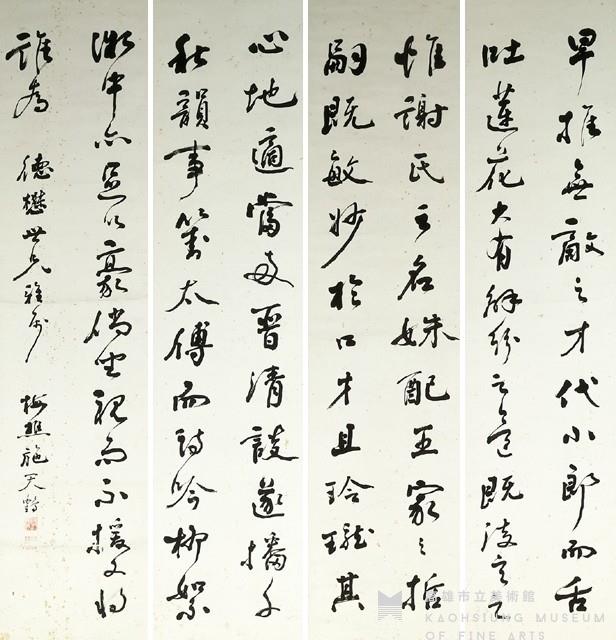 早推無敵之才代小郎而舌
吐蓮花大有解紛之意既
惟謝氏之名姝配王家之哲
嗣既敏妙於口才且玲瓏其
心地適當晉清談遂播千
秋韻事對太傅而詩吟柳絮
微中亦足以豪倘坐視而不援又將
誰為
德懋世兄雅屬
梅樵施天鶴
高雄市立美術館
KAOHSIUNG MUSEUM
OF FINE ARTS